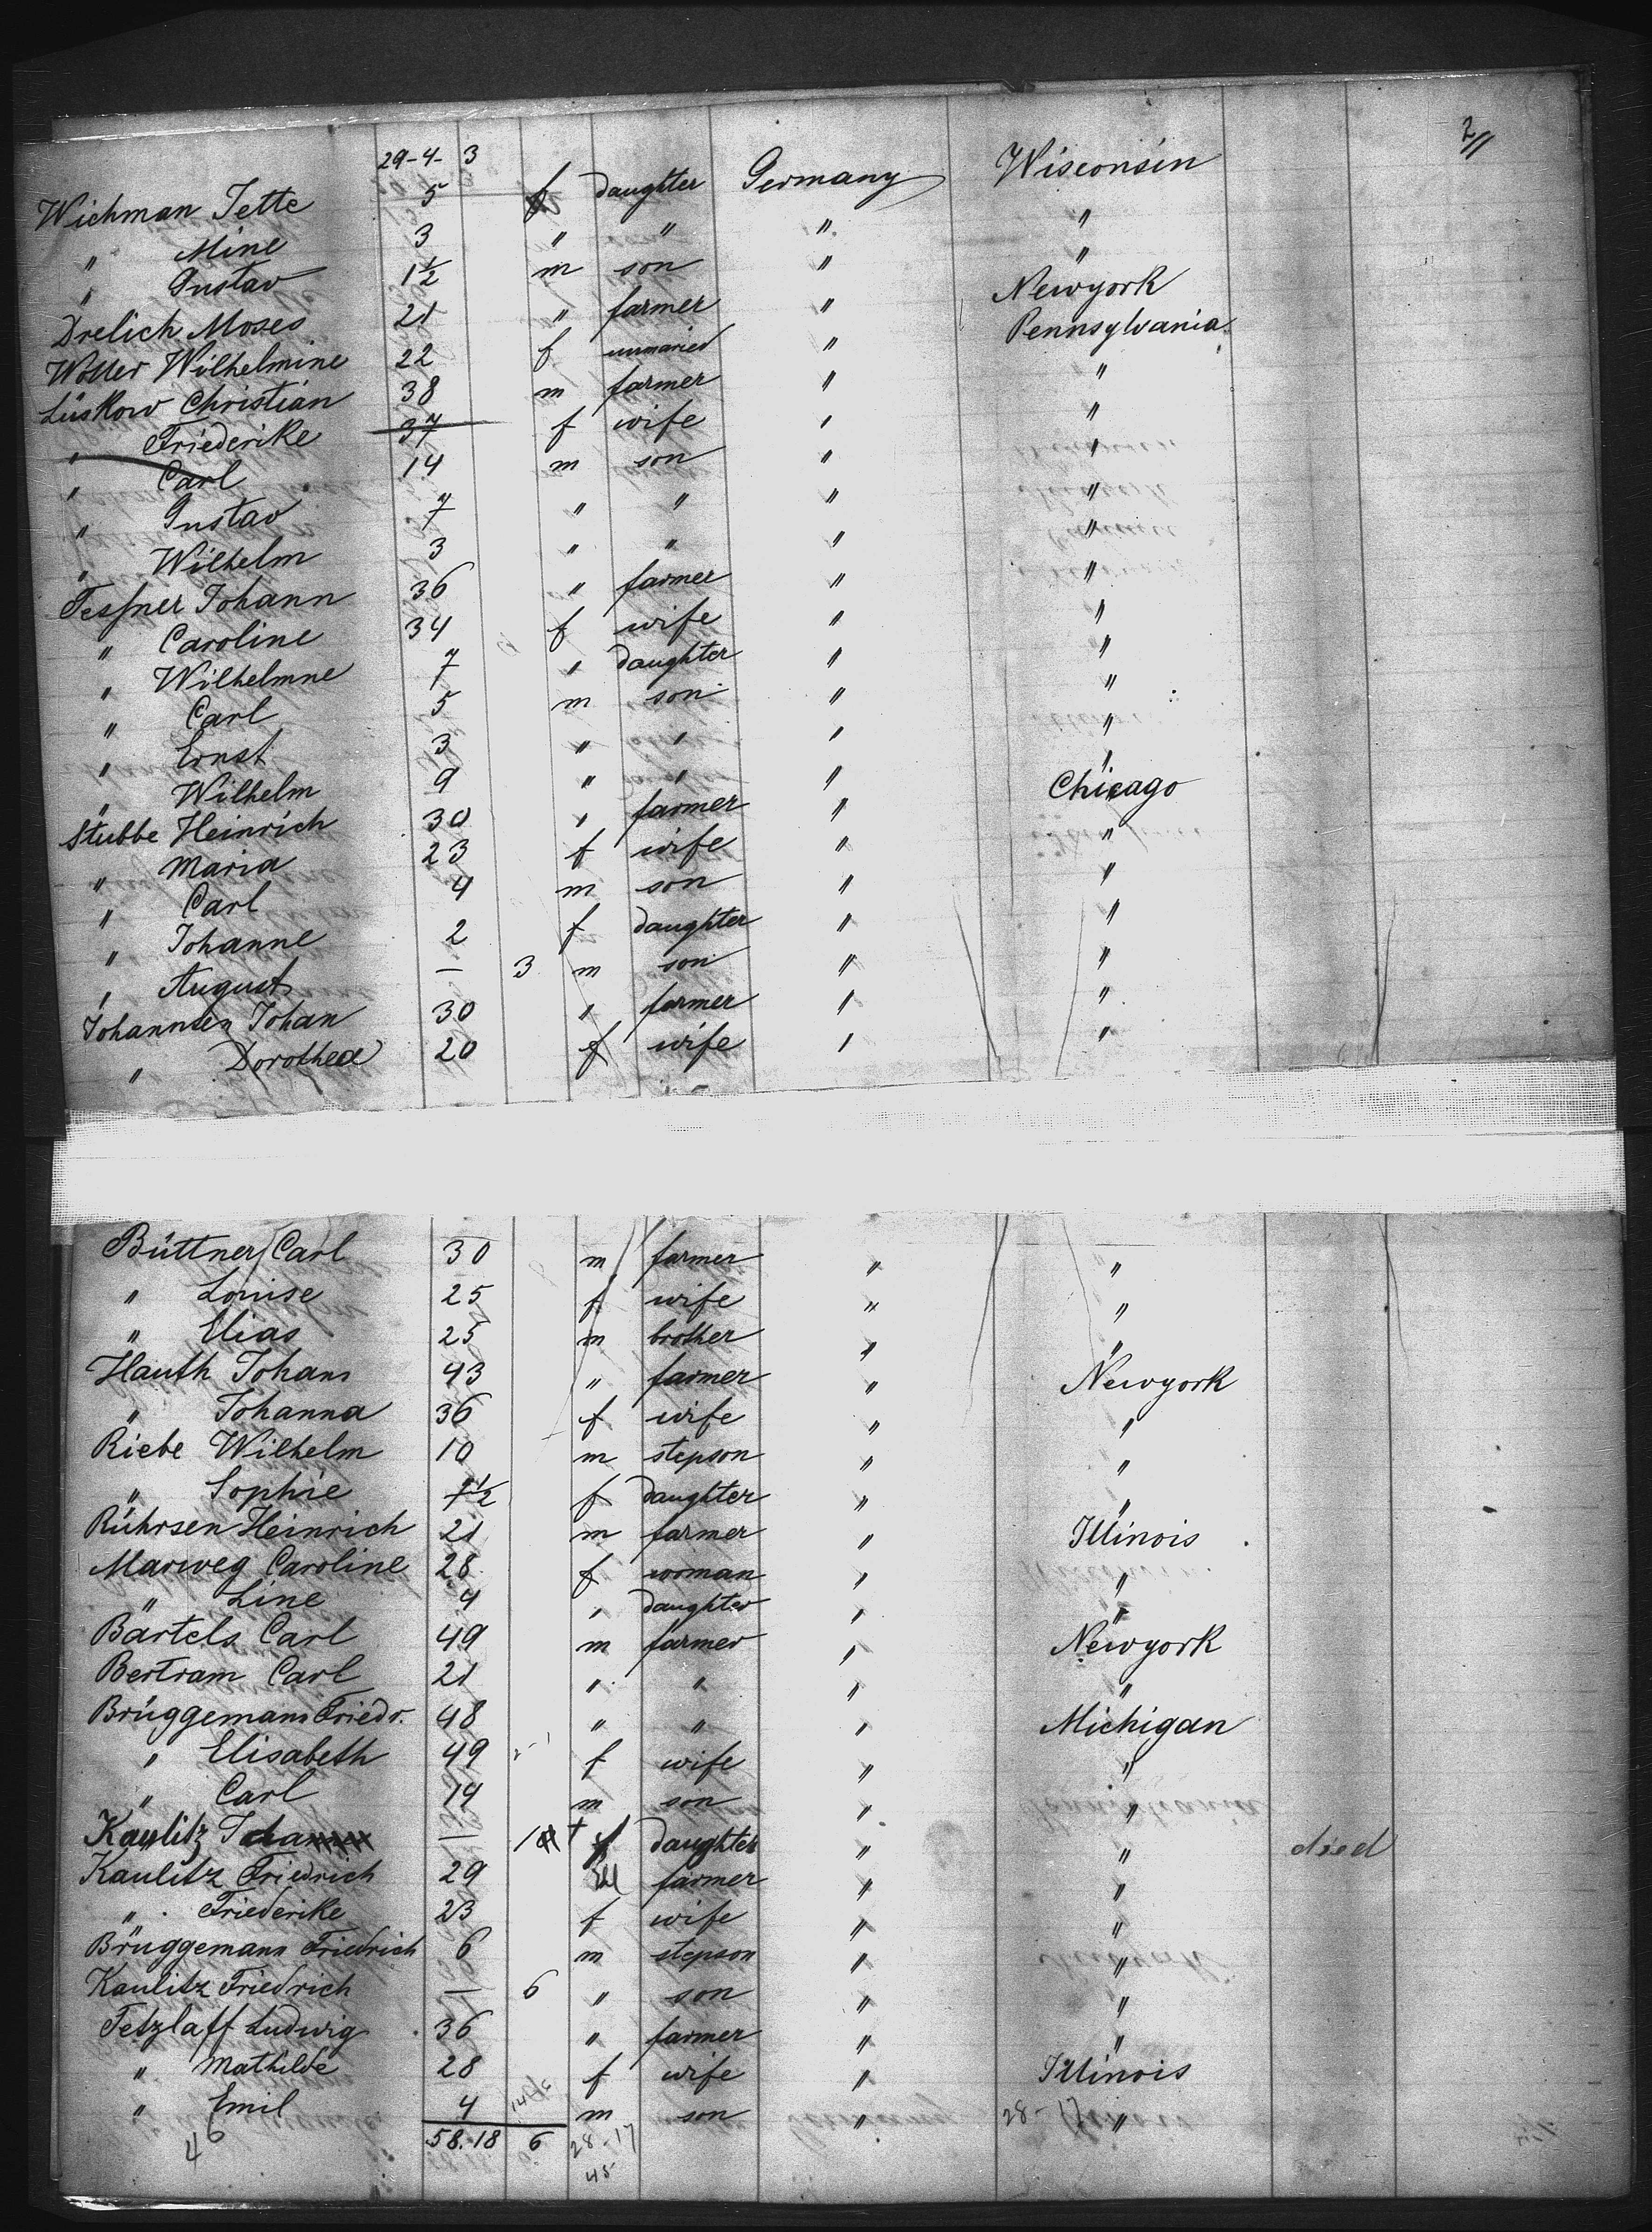 29-4- 3
2/
Wichman Jette 5 f daughter Germany Wisconsin
" Mine 3 " " " "
" Gustav 1 1/2 m son " "
Drelich Moses 21 " farmer " Newyork
Woller Wilhelmine 22 f unmaried " Pennsylvania
Lüskow Christian 38 m farmer " "
" Friederike 37 f wife " "
" Carl 14 m son " "
" Gustav 7 " " " "
" Wilhelm 3 " " " "
Tessner Johann 36 " farmer " "
" Caroline 34 f wife " "
" Wilhelmne 7 " daughter " "
" Carl 5 m son " "
" Ernst 3 " " " "
" Wilhelm 9 " " " "
Stubbe Heinrich 30 " farmer " Chicago
" Maria 23 f wife " "
" Carl 4 m son " "
" Johanne 2 f daughter " "
" August — 3 m son " "
Johannsen Johan 30 " farmer " "
" Dorothea 20 f wife " "
Büttner Carl 30 m farmer " "
" Louise 25 f wife " "
" Elias 25 m brother " "
Hauth Johann 43 " farmer " Newyork
" Johanna 36 f wife " "
Riebe Wilhelm 10 m stepson " "
" Sophie 7 1/2 f daughter " "
Rührsen Heinrich 21 m farmer " Illinois
Marweg Caroline 28 f woman " "
" Line 4 " daughter " "
Bartels Carl 49 m farmer " Newyork
Bertram Carl 21 " " " "
Brüggemann Friedr. 48 " " " Michigan
" Elisabeth 49 f wife " "
" Carl 14 m son " "
Kaulitz — f daughter " " died
Kaulitz Friedrich 29 m farmer " "
" Friederike 23 f wife " "
Brüggemann Friedrich 6 m stepson " "
Kaulitz Friedrich — 6 " son " "
Tetzlaff Ludwig 36 " farmer " "
" Mathilde 28 f wife " Illinois
" Emil 4 m son " "
46 58.18 6 28-17 28-17
45